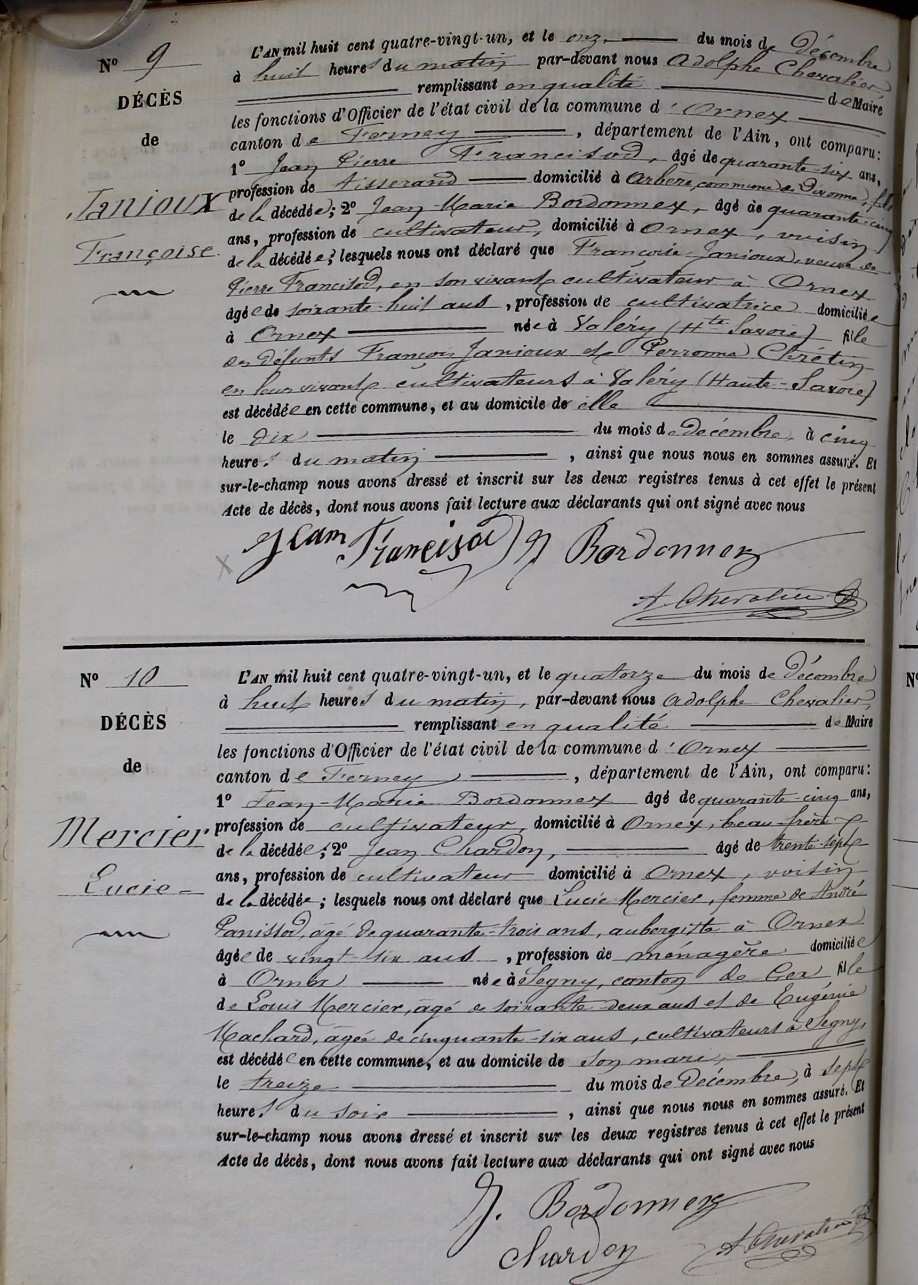 N° 9
DÉCÈS
de
Janioux
Françoise
L'AN mil huit cent quatre-vingt-un, et le onze du mois de décembre
à huit heures du matin par-devant nous Adolphe Chevalier,
remplissant en qualité de Maire
les fonctions d'Officier de l'état civil de la commune d'Ornex
canton de Ferney, département de l'Ain, ont comparu:
1° Jean Pierre Francisod, âgé de quarante-six ans,
profession de tisserand domicilié à Arbere, commune de Divonne, fils
de la décédée; 2° Jean-Marie Bordonnex, âgé de quarante-cinq
ans, profession de cultivateur, domicilié à Ornex, voisin
de la décédée; lesquels nous ont déclaré que Françoise Janioux, veuve de
Pierre Francisod, en son vivant cultivateur à Ornex
âgée de soixante-huit ans, profession de cultivatrice domiciliée
à Ornex née à Valéry (Hte Savoie) fille
de défunts François Janioux et Perronne Chrétin
en leur vivant cultivateurs à Valéry (Haute-Savoie)
est décédée en cette commune, et au domicile de elle
le dix du mois de décembre, à cinq
heures du matin, ainsi que nous nous en sommes assuré. Et
sur-le-champ nous avons dressé et inscrit sur les deux registres tenus à cet effet le présent
Acte de décès, dont nous avons fait lecture aux déclarants qui ont signé avec nous
Jean Francisod J Bordonnex
A Chevalier
N° 10
DÉCÈS
de
Mercier
Lucie
L'AN mil huit cent quatre-vingt-un, et le quatorze du mois de décembre
à huit heures du matin, par-devant nous Adolphe Chevalier,
remplissant en qualité de Maire
les fonctions d'Officier de l'état civil de la commune d'Ornex
canton de Ferney, département de l'Ain, ont comparu:
1° Jean-Marie Bordonnex âgé de quarante-cinq ans,
profession de cultivateur, domicilié à Ornex, beau-frère
de la décédée; 2° Jean Chardon, âgé de trente-sept
ans, profession de cultivateur domicilié à Ornex, voisin
de la décédée; lesquels nous ont déclaré que Lucie Mercier, femme de André
Panissod, âgé de quarante-trois ans, aubergiste à Ornex
âgée de vingt-six ans, profession de ménagère domiciliée
à Ornex née à Segny, canton de Gex fille
de Louis Mercier, âgé de soixante-deux ans et de Eugénie
Machard, âgée de cinquante-six ans, cultivateurs à Segny,
est décédée en cette commune, et au domicile de son mari,
le treize du mois de décembre, à sept
heures du soir, ainsi que nous nous en sommes assuré. Et
sur-le-champ nous avons dressé et inscrit sur les deux registres tenus à cet effet le présent
Acte de décès, dont nous avons fait lecture aux déclarants qui ont signé avec nous
J. Bordonnex
Chardon A Chevalier